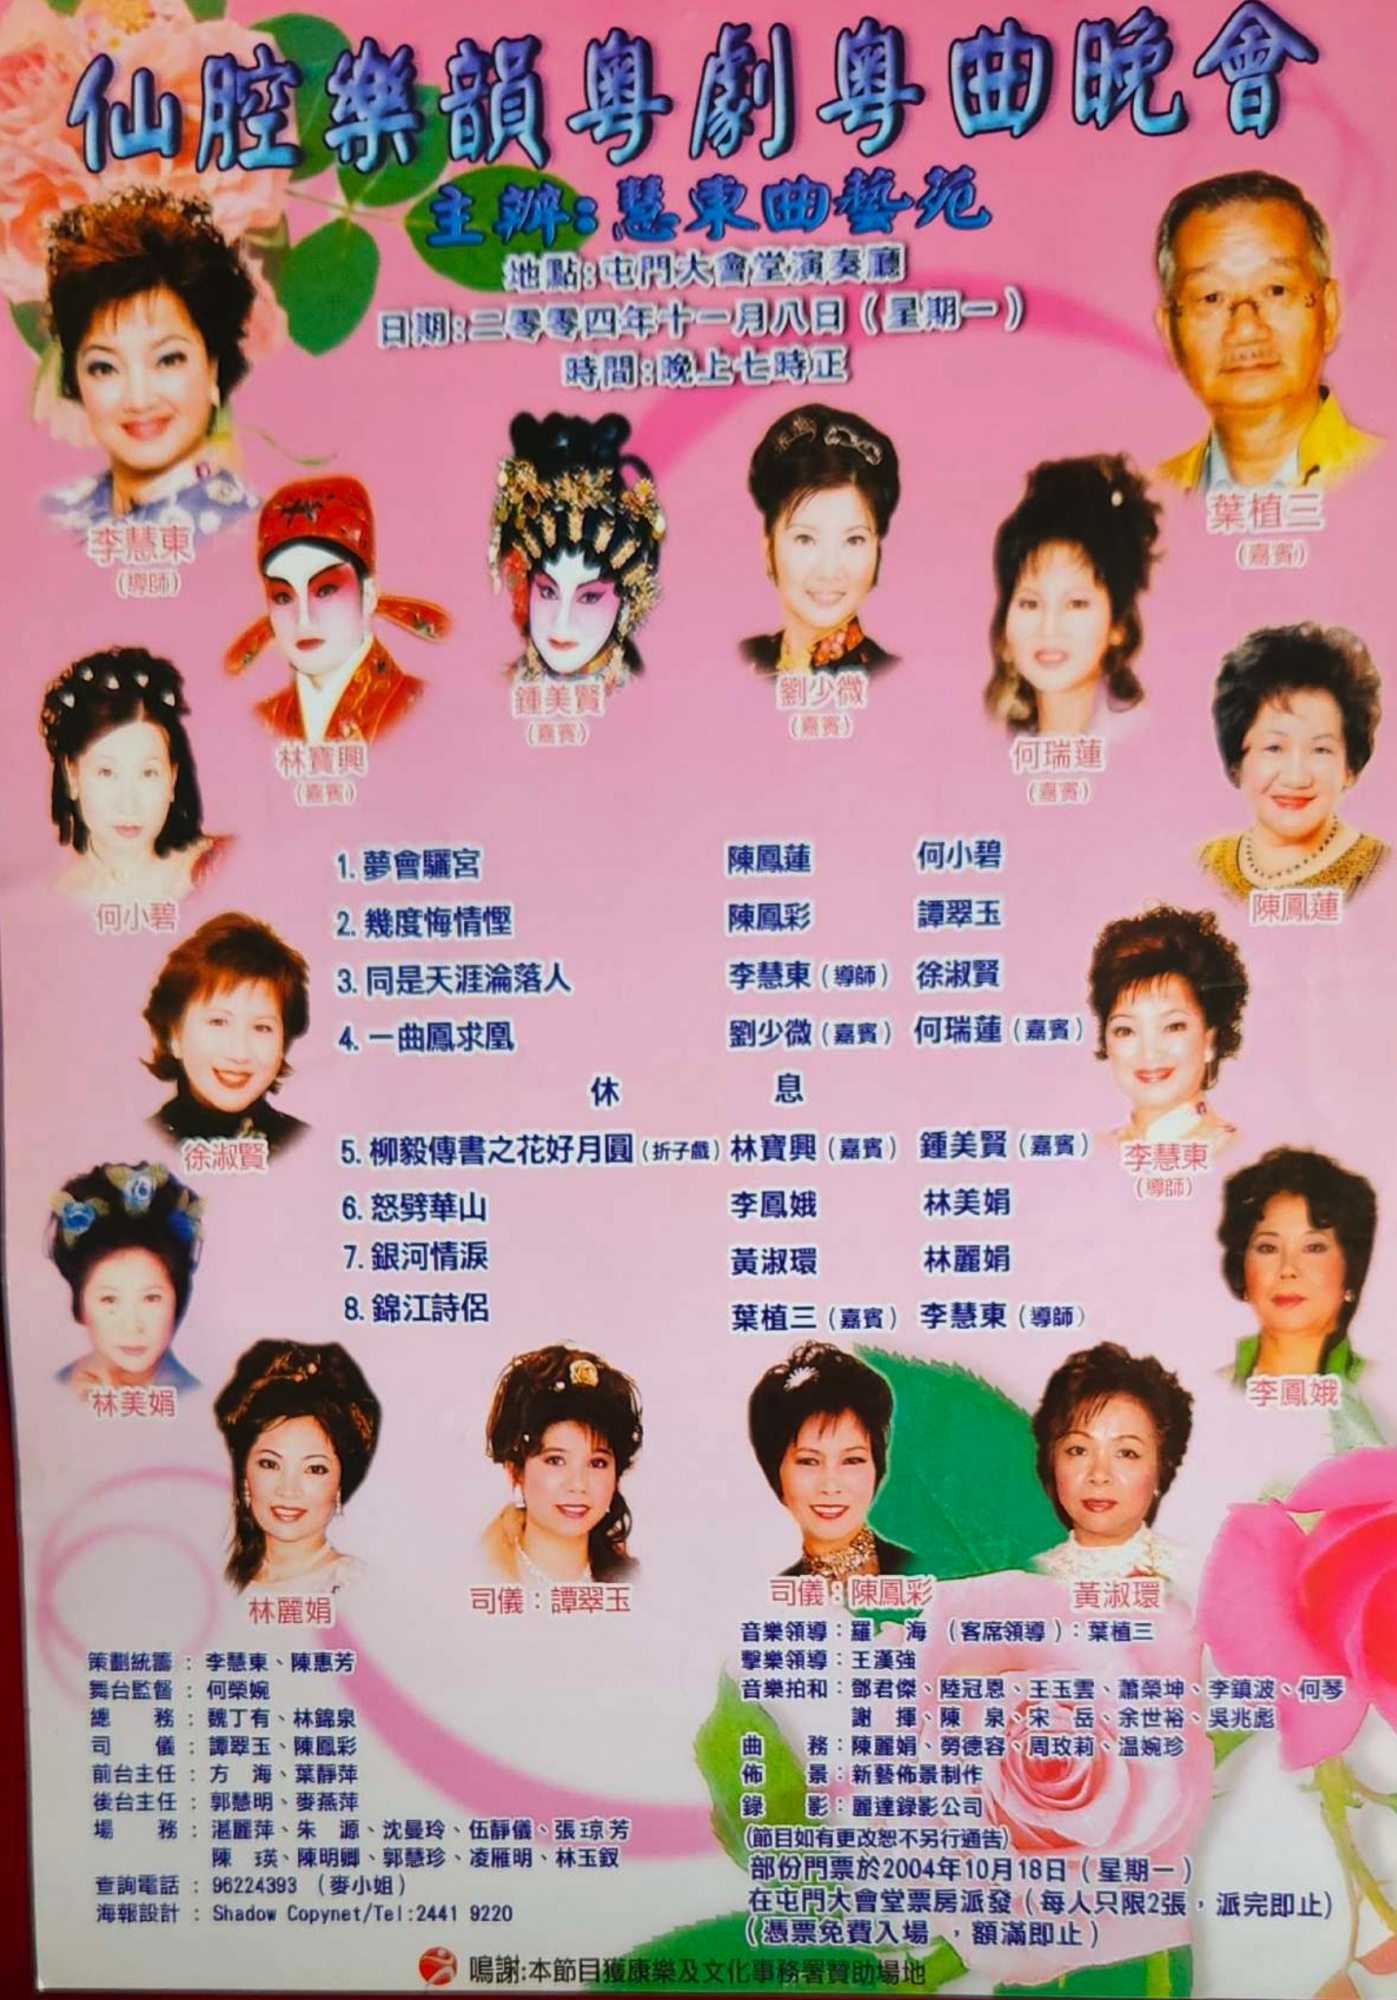 仙腔樂韻粵劇粵曲晚會
主辦:慧東曲藝苑
地點:屯門大會堂演奏廳
日期:二零零四年十一月八日（星期一）
時間:晚上七時正
李慧東
(導師)
葉植三
(嘉賓)
林寶興
(嘉賓)
鍾美賢
(嘉賓)
劉少微
(嘉賓)
何瑞蓮
(嘉賓)
何小碧
陳鳳蓮
1. 夢會驪宮 陳鳳蓮 何小碧
2. 幾度悔情慳 陳鳳彩 譚翠玉
3. 同是天涯淪落人 李慧東（導師） 徐淑賢
4. 一曲鳳求凰 劉少微（嘉賓） 何瑞蓮（嘉賓）
休 息
5. 柳毅傳書之花好月圓（折子戲） 林寶興（嘉賓） 鍾美賢（嘉賓）
6. 怒劈華山 李鳳娥 林美娟
7. 銀河情淚 黃淑環 林麗娟
8. 錦江詩侶 葉植三（嘉賓） 李慧東（導師）
徐淑賢
李慧東
(導師)
林美娟
李鳳娥
林麗娟
司儀：譚翠玉
司儀：陳鳳彩
黃淑環
策劃統籌 : 李慧東、陳惠芳
舞台監督 : 何榮婉
總 務 : 魏丁有、林錦泉
司 儀 : 譚翠玉、陳鳳彩
前台主任 : 方 海、葉靜萍
後台主任 : 郭慧明、麥燕萍
場 務 : 湛麗萍、朱 源、沈曼玲、伍靜儀、張琼芳
陳 瑛、陳明卿、郭慧珍、凌雁明、林玉釵
查詢電話 : 96224393 （麥小姐）
海報設計 : Shadow Copynet/Tel:2441 9220
音樂領導：羅 海 （客席領導）：葉植三
擊樂領導：王漢強
音樂拍和：鄧君傑、陸冠恩、王玉雲、蕭榮坤、李鎮波、何琴
謝 揮、陳 泉、宋 岳、余世裕、吳兆彪
曲 務：陳麗娟、勞德容、周玫莉、溫婉珍
佈 景：新藝佈景制作
錄 影：麗達錄影公司
(節目如有更改恕不另行通告)
部份門票於2004年10月18日（星期一）
在屯門大會堂票房派發（每人只限2張，派完即止)
（憑票免費入場 ，額滿即止）
鳴謝:本節目獲康樂及文化事務署贊助場地